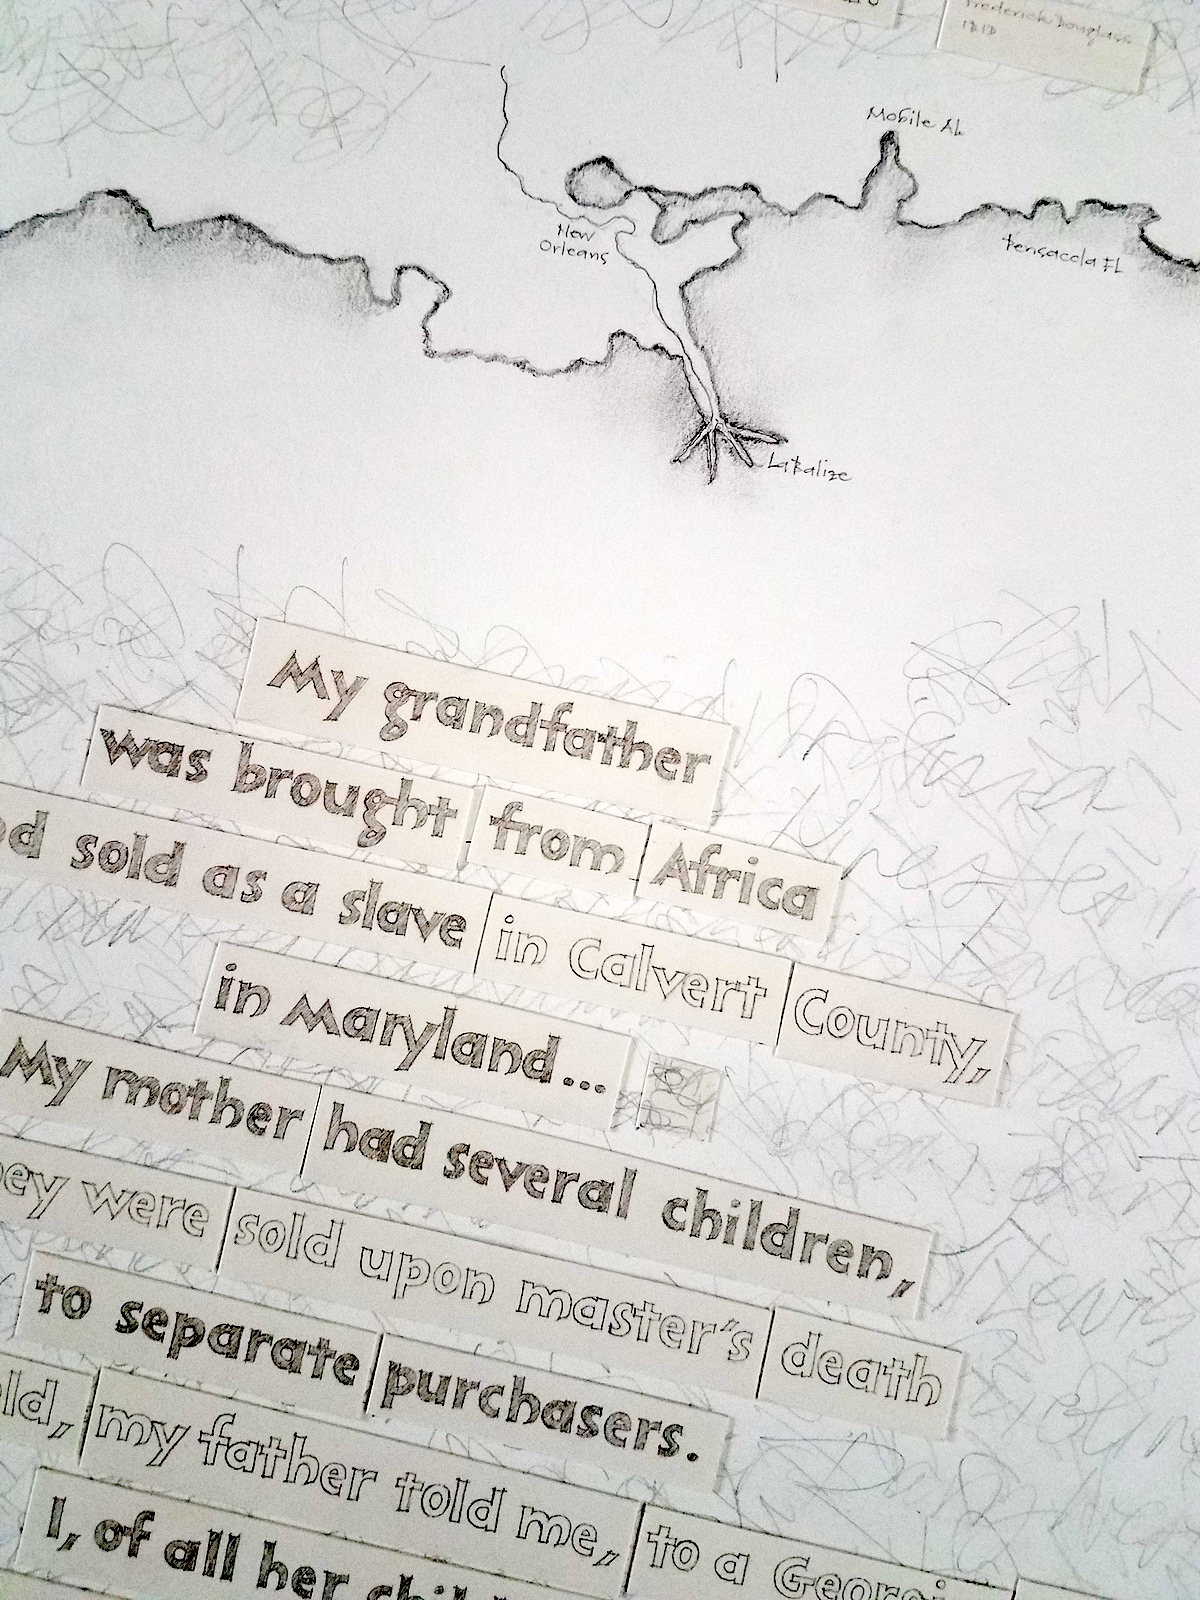 Frederick Douglass
1818
Mobile AL
New
Orleans
Pensacola FL
LaBalize
My grandfather
was brought from Africa
sold as a slave in Calvert County,
in Maryland...
My mother had several children,
were sold upon master's death
to separate purchasers.
my father told me, to a
I, of all her